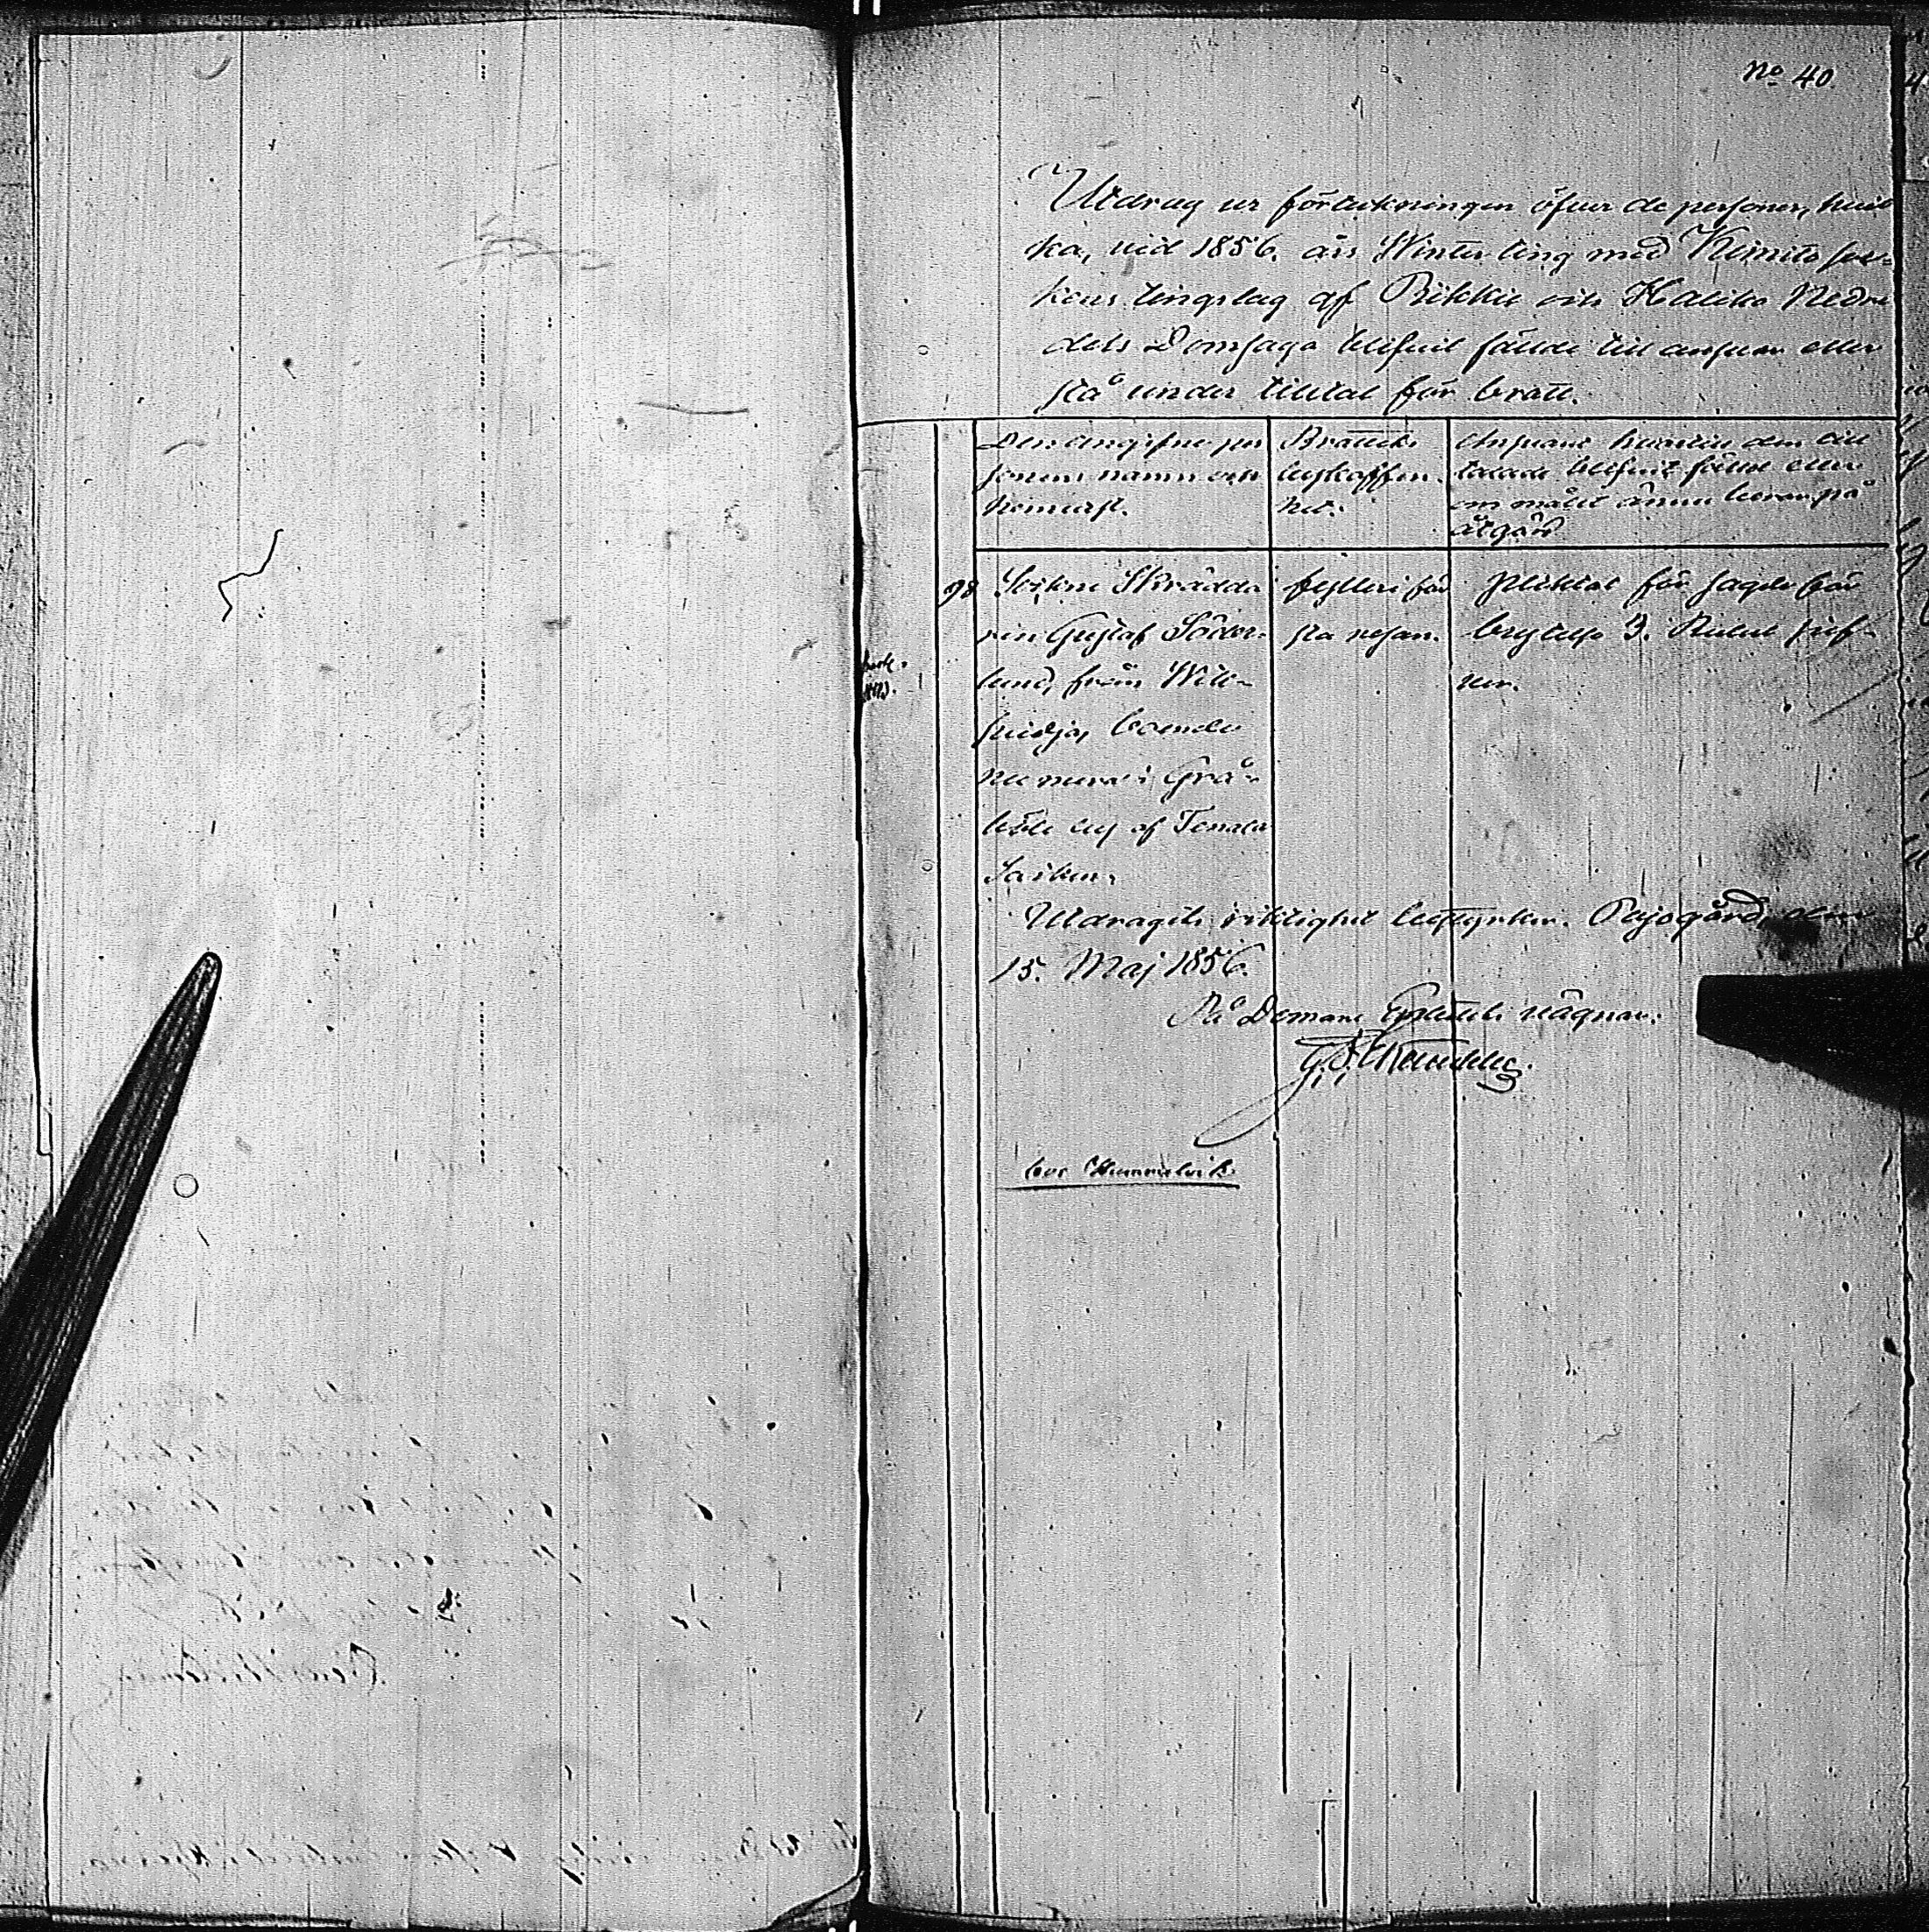 No 40.
Utdrag ur förtekningen öfver de personer, hvil
ka, vid 1856. års Winterting med Kimito soc-
kens tingslag af Pikkie och Halikko Nedre
dels Domsaga blifvit fälde till ansvar eller
stå under tilltal för brott.
Den angifne per
sonens namn och
hemvist.
Brottets
beskaffen-
het.
Ansvaret hvartill den till
talade blifvit fälld eller
om målet ännu beror på
åtgärd
98
Sockne Skrädda
ren Gustaf Söder-
lund, från Will-
svidja, boende
nu mera i Grå-
böle by af Tenala
Socken.
fylleri för
sta resan.
pliktat för sagde för
brytelse 3. Rubel silf-
ver.
Utdragets riktighet bestyrker. Pajogård, den
15. Maj 1856.
På Domare Embetets vägnar:
bor Hummelvik